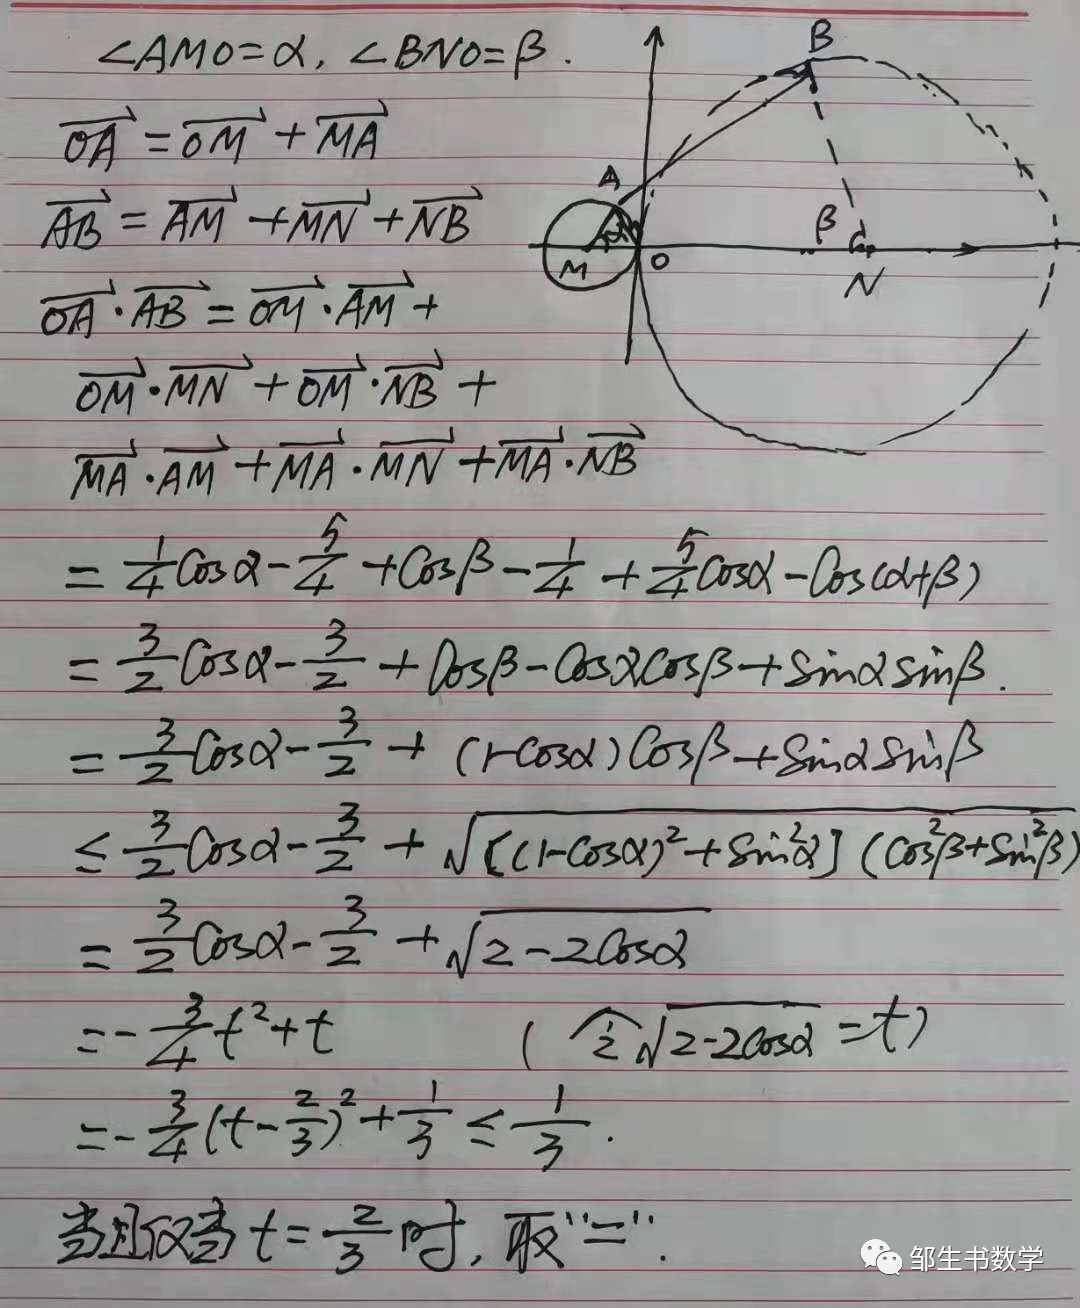 ∠AMO=α, ∠BNO=β.
B
→OA = →OM + →MA
A
→AB = →AM + →MN + →NB
α
β
M
O
N
→OA · →AB = →OM · →AM +
→OM · →MN + →OM · →NB +
→MA · →AM + →MA · →MN + →MA · →NB
= 1/4 Cosα - 5/4 + Cosβ - 1/4 + 5/4 Cosα - Cos(α+β)
= 3/2 Cosα - 3/2 + Cosβ - CosαCosβ + Sinα Sinβ.
= 3/2 Cosα - 3/2 + (1-Cosα) Cosβ + Sinα Sinβ
≤ 3/2 Cosα - 3/2 + √([(1-Cosα)² + Sin²α] (Cos²β + Sin²β))
= 3/2 Cosα - 3/2 + √(2 - 2Cosα)
= - 3/4 t² + t (令√(2-2Cosα) = t)
= - 3/4 (t - 2/3)² + 1/3 ≤ 1/3.
当且仅当 t = 2/3 时, 取"=".
邹生书数学